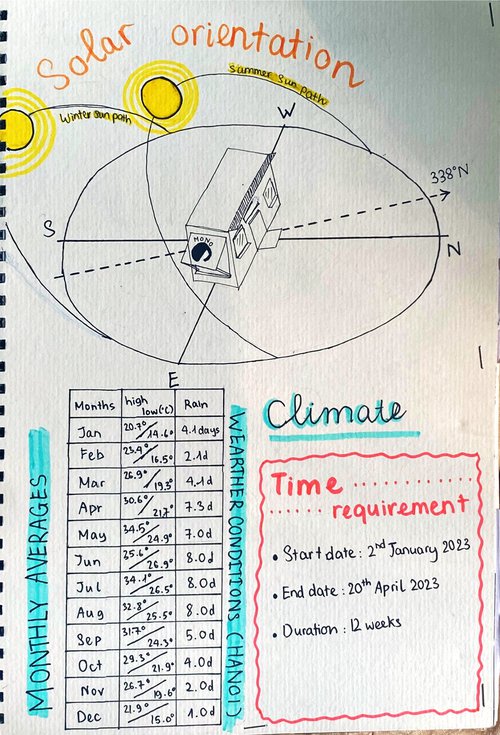 Solar orientation
Summer sun path
Winter sun path
W
338°N
S
N
MONO
E
Months high low(°C) Rain
Jan 20.7°/14.6° 4.1 days
Feb 23.4°/16.5° 2.1d
Mar 26.9°/19.5° 4.1d
Apr 30.6°/21.7° 7.3d
May 34.5°/24.9° 7.0d
Jun 25.6°/26.9° 8.0d
Jul 34.1°/26.5° 8.0d
Aug 32.8°/25.5° 8.0d
Sep 31.7°/24.3° 5.0d
Oct 29.3°/21.9° 4.0d
Nov 26.7°/19.6° 2.0d
Dec 21.9°/15.0° 1.0d
MONTHLY AVERAGES
WEARTHER CONDITIONS (HANOI)
Climate
Time
requirement
• Start date : 2nd January 2023
• End date : 20th April 2023
• Duration : 12 weeks